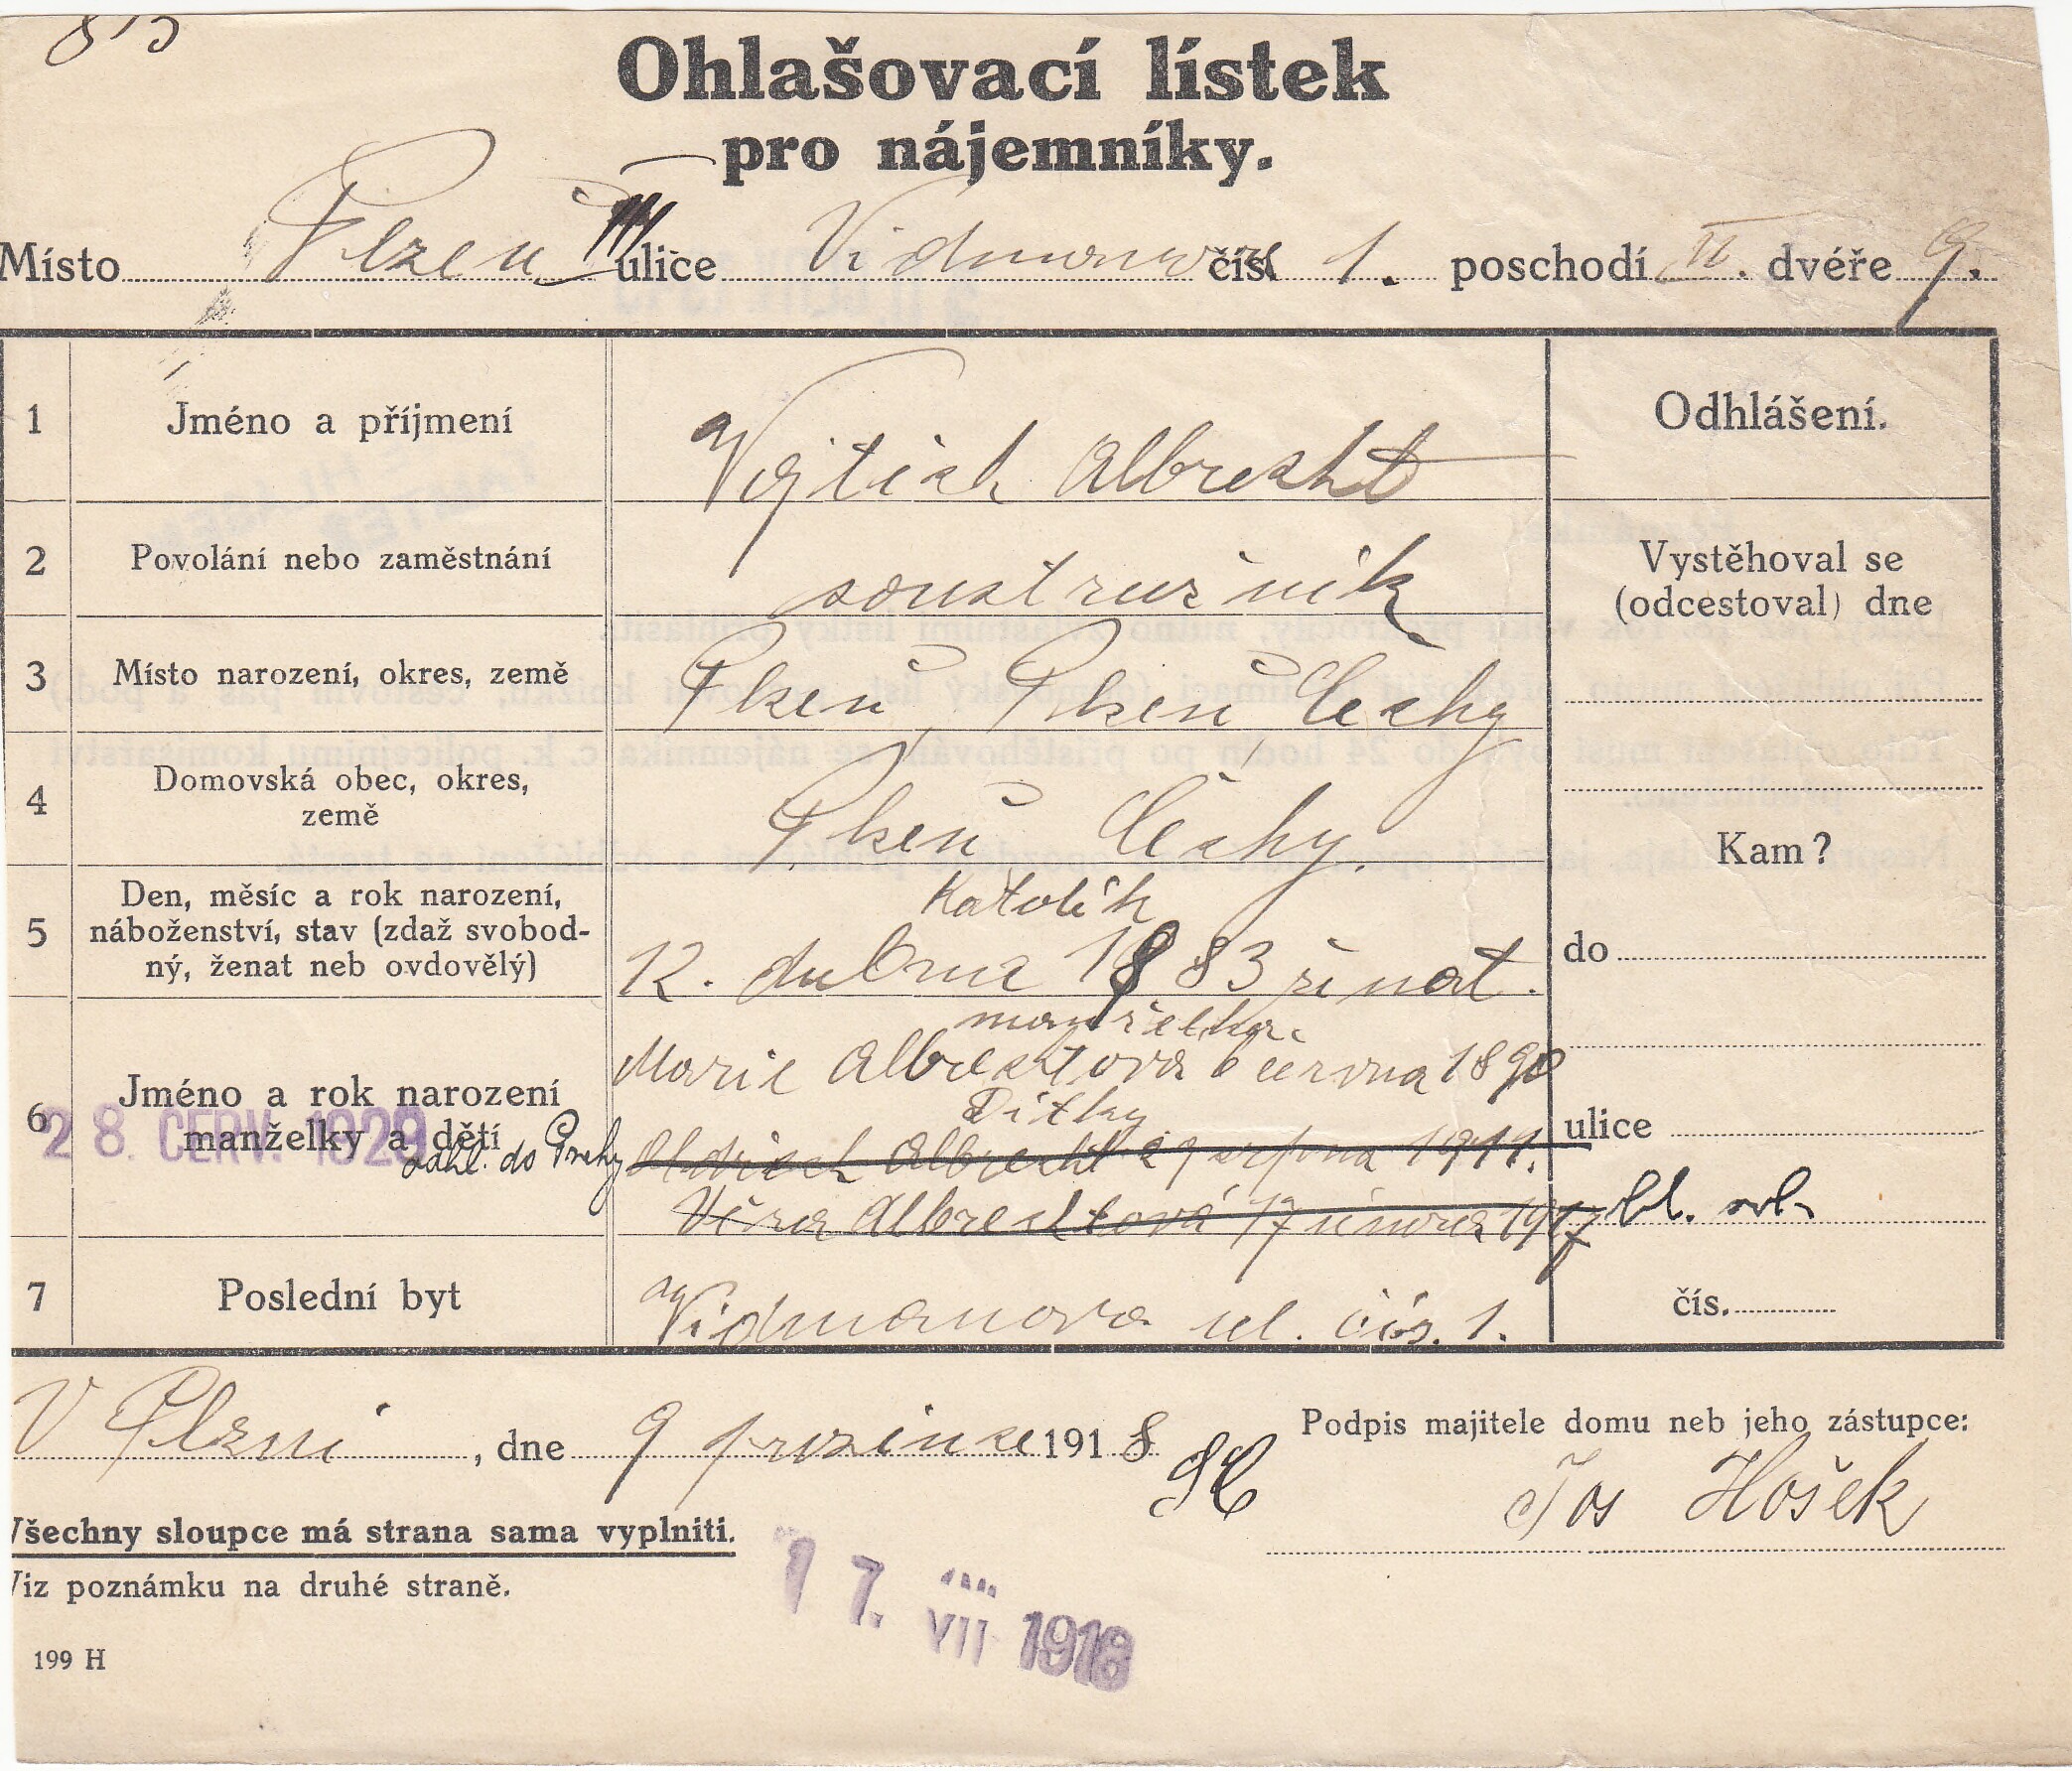 Ohlašovací lístek
pro nájemníky.
Místo Plzeň ulice Vidmanova čís. 1. poschodí II. dvéře 9.
1 Jméno a příjmení Vojtěch Albrecht Odhlášení.
2 Povolání nebo zaměstnání soustružník Vystěhoval se
(odcestoval) dne
3 Místo narození, okres, země Plzeň, Plzeň Čechy
4 Domovská obec, okres,
země Plzeň Čechy. Kam?
Katolík
5 Den, měsíc a rok narození,
náboženství, stav (zdaž svobod-
ný, ženat neb ovdovělý) 12. dubna 1883 ženat. do
manželka
Marie Albrechtova 6 června 1890
6 Jméno a rok narození
manželky a dětí
Dítky
28. ČERV. 1929
odhl. do Prahy Oldřich Albrecht 29 srpna 1911. ulice
Věra Albrechtová 17 února 1917
7 Poslední byt Vidmanova ul. čís. 1. čís.
V Plzni, dne 9 prosince 1918 Podpis majitele domu neb jeho zástupce:
Jos Hošek
Všechny sloupce má strana sama vyplniti.
Viz poznámku na druhé straně.
17. VII 1918
199 H